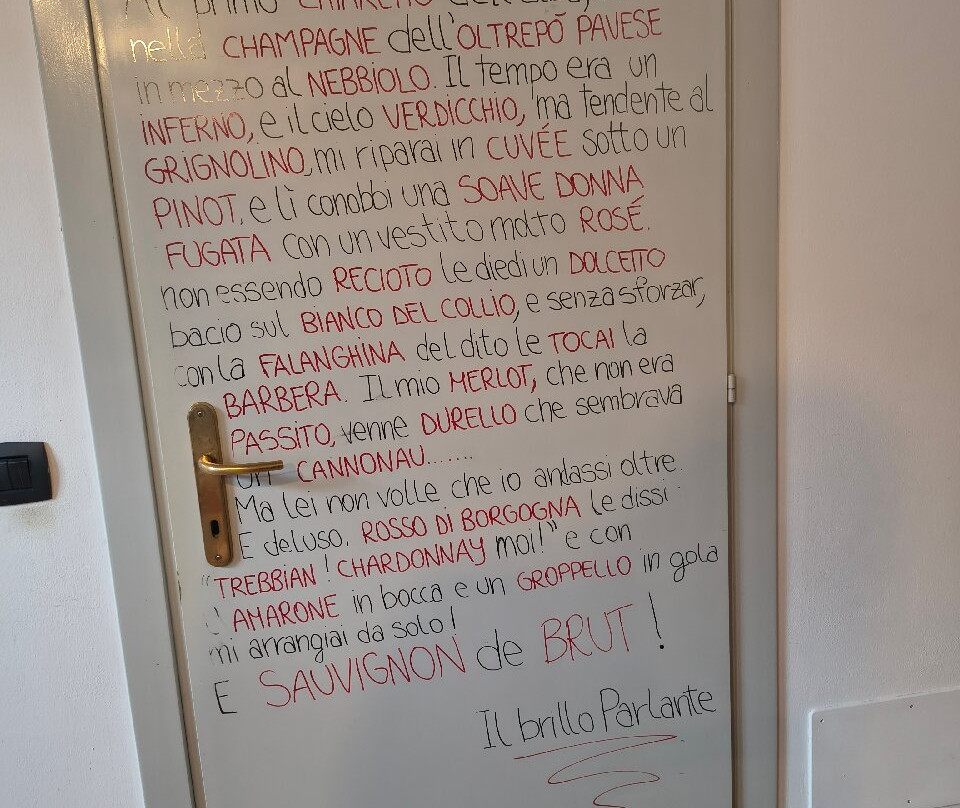 Al primo CHIARETTO
nella CHAMPAGNE dell'OLTREPÒ PAVESE
in mezzo al NEBBIOLO. Il tempo era un
INFERNO, e il cielo VERDICCHIO, ma tendente al
GRIGNOLINO, mi riparai in CUVÉE sotto un
PINOT, e lì conobbi una SOAVE DONNA
FUGATA con un vestito molto ROSÉ.
non essendo RECIOTO le diedi un DOLCETTO
bacio sul BIANCO DEL COLLIO, e senza sforzar,
con la FALANGHINA del dito le TOCAI la
BARBERA. Il mio MERLOT, che non era
PASSITO, venne DURELLO che sembrava
un CANNONAU.......
Ma lei non volle che io andassi oltre.
E deluso, ROSSO DI BORGOGNA le dissi
"TREBBIAN! CHARDONNAY moi!" e con
L'AMARONE in bocca e un GROPPELLO in gola
mi arrangiai da solo!
E SAUVIGNON de BRUT!
Il brillo Parlante